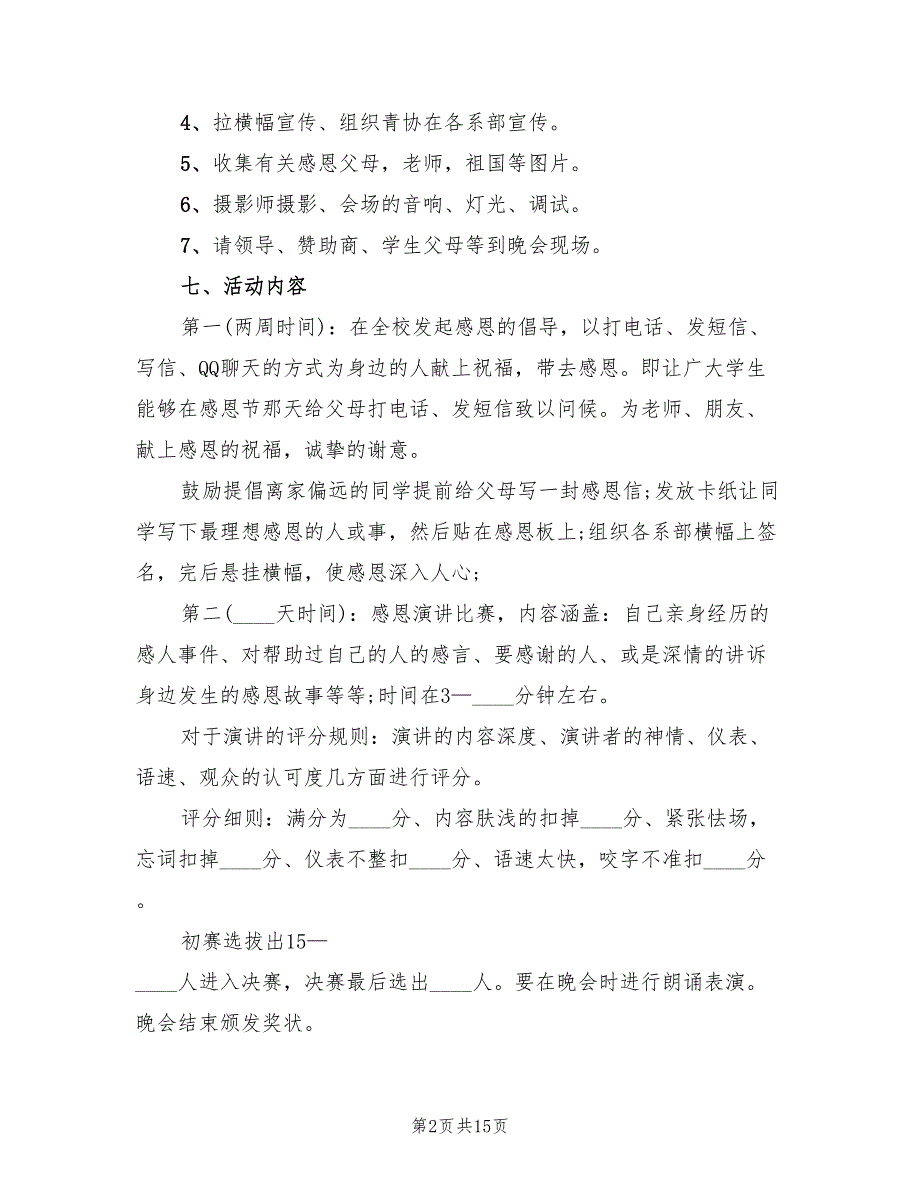 4、拉横幅宣传、组织青协在各系部宣传。
5、收集有关感恩父母，老师，祖国等图片。
6、摄影师摄影、会场的音响、灯光、调试。
7、请领导、赞助商、学生父母等到晚会现场。
七、活动内容
第一(两周时间)：在全校发起感恩的倡导，以打电话、发短信、
写信、QQ聊天的方式为身边的人献上祝福，带去感恩。即让广大学生
能够在感恩节那天给父母打电话、发短信致以问候。为老师、朋友、
献上感恩的祝福，诚挚的谢意。
鼓励提倡离家偏远的同学提前给父母写一封感恩信;发放卡纸让同
学写下最理想感恩的人或事，然后贴在感恩板上;组织各系部横幅上签
名，完后悬挂横幅，使感恩深入人心;
第二(____天时间)：感恩演讲比赛，内容涵盖：自己亲身经历的
感人事件、对帮助过自己的人的感言、要感谢的人、或是深情的讲诉
身边发生的感恩故事等等;时间在3—____分钟左右。
对于演讲的评分规则：演讲的内容深度、演讲者的神情、仪表、
语速、观众的认可度几方面进行评分。
评分细则：满分为____分、内容肤浅的扣掉____分、紧张怯场，
忘词扣掉____分、仪表不整扣____分、语速太快，咬字不准扣____分
。
初赛选拔出15—
____人进入决赛，决赛最后选出____人。要在晚会时进行朗诵表演。
晚会结束颁发奖状。
第2页共15页